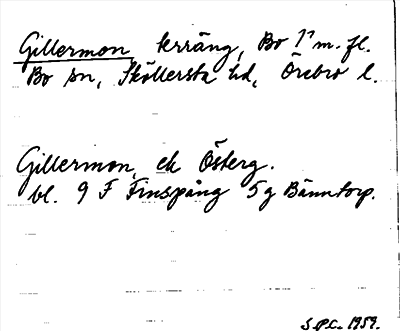 Gillermon, terräng, Bo 1⁷ m. fl.
Bo sn, Sköllersta hd, Örebro l.
Gillermon, ek Österg.
bl. 9 F Finspång 5 g Bänntorp.
S.P.C. 1959.